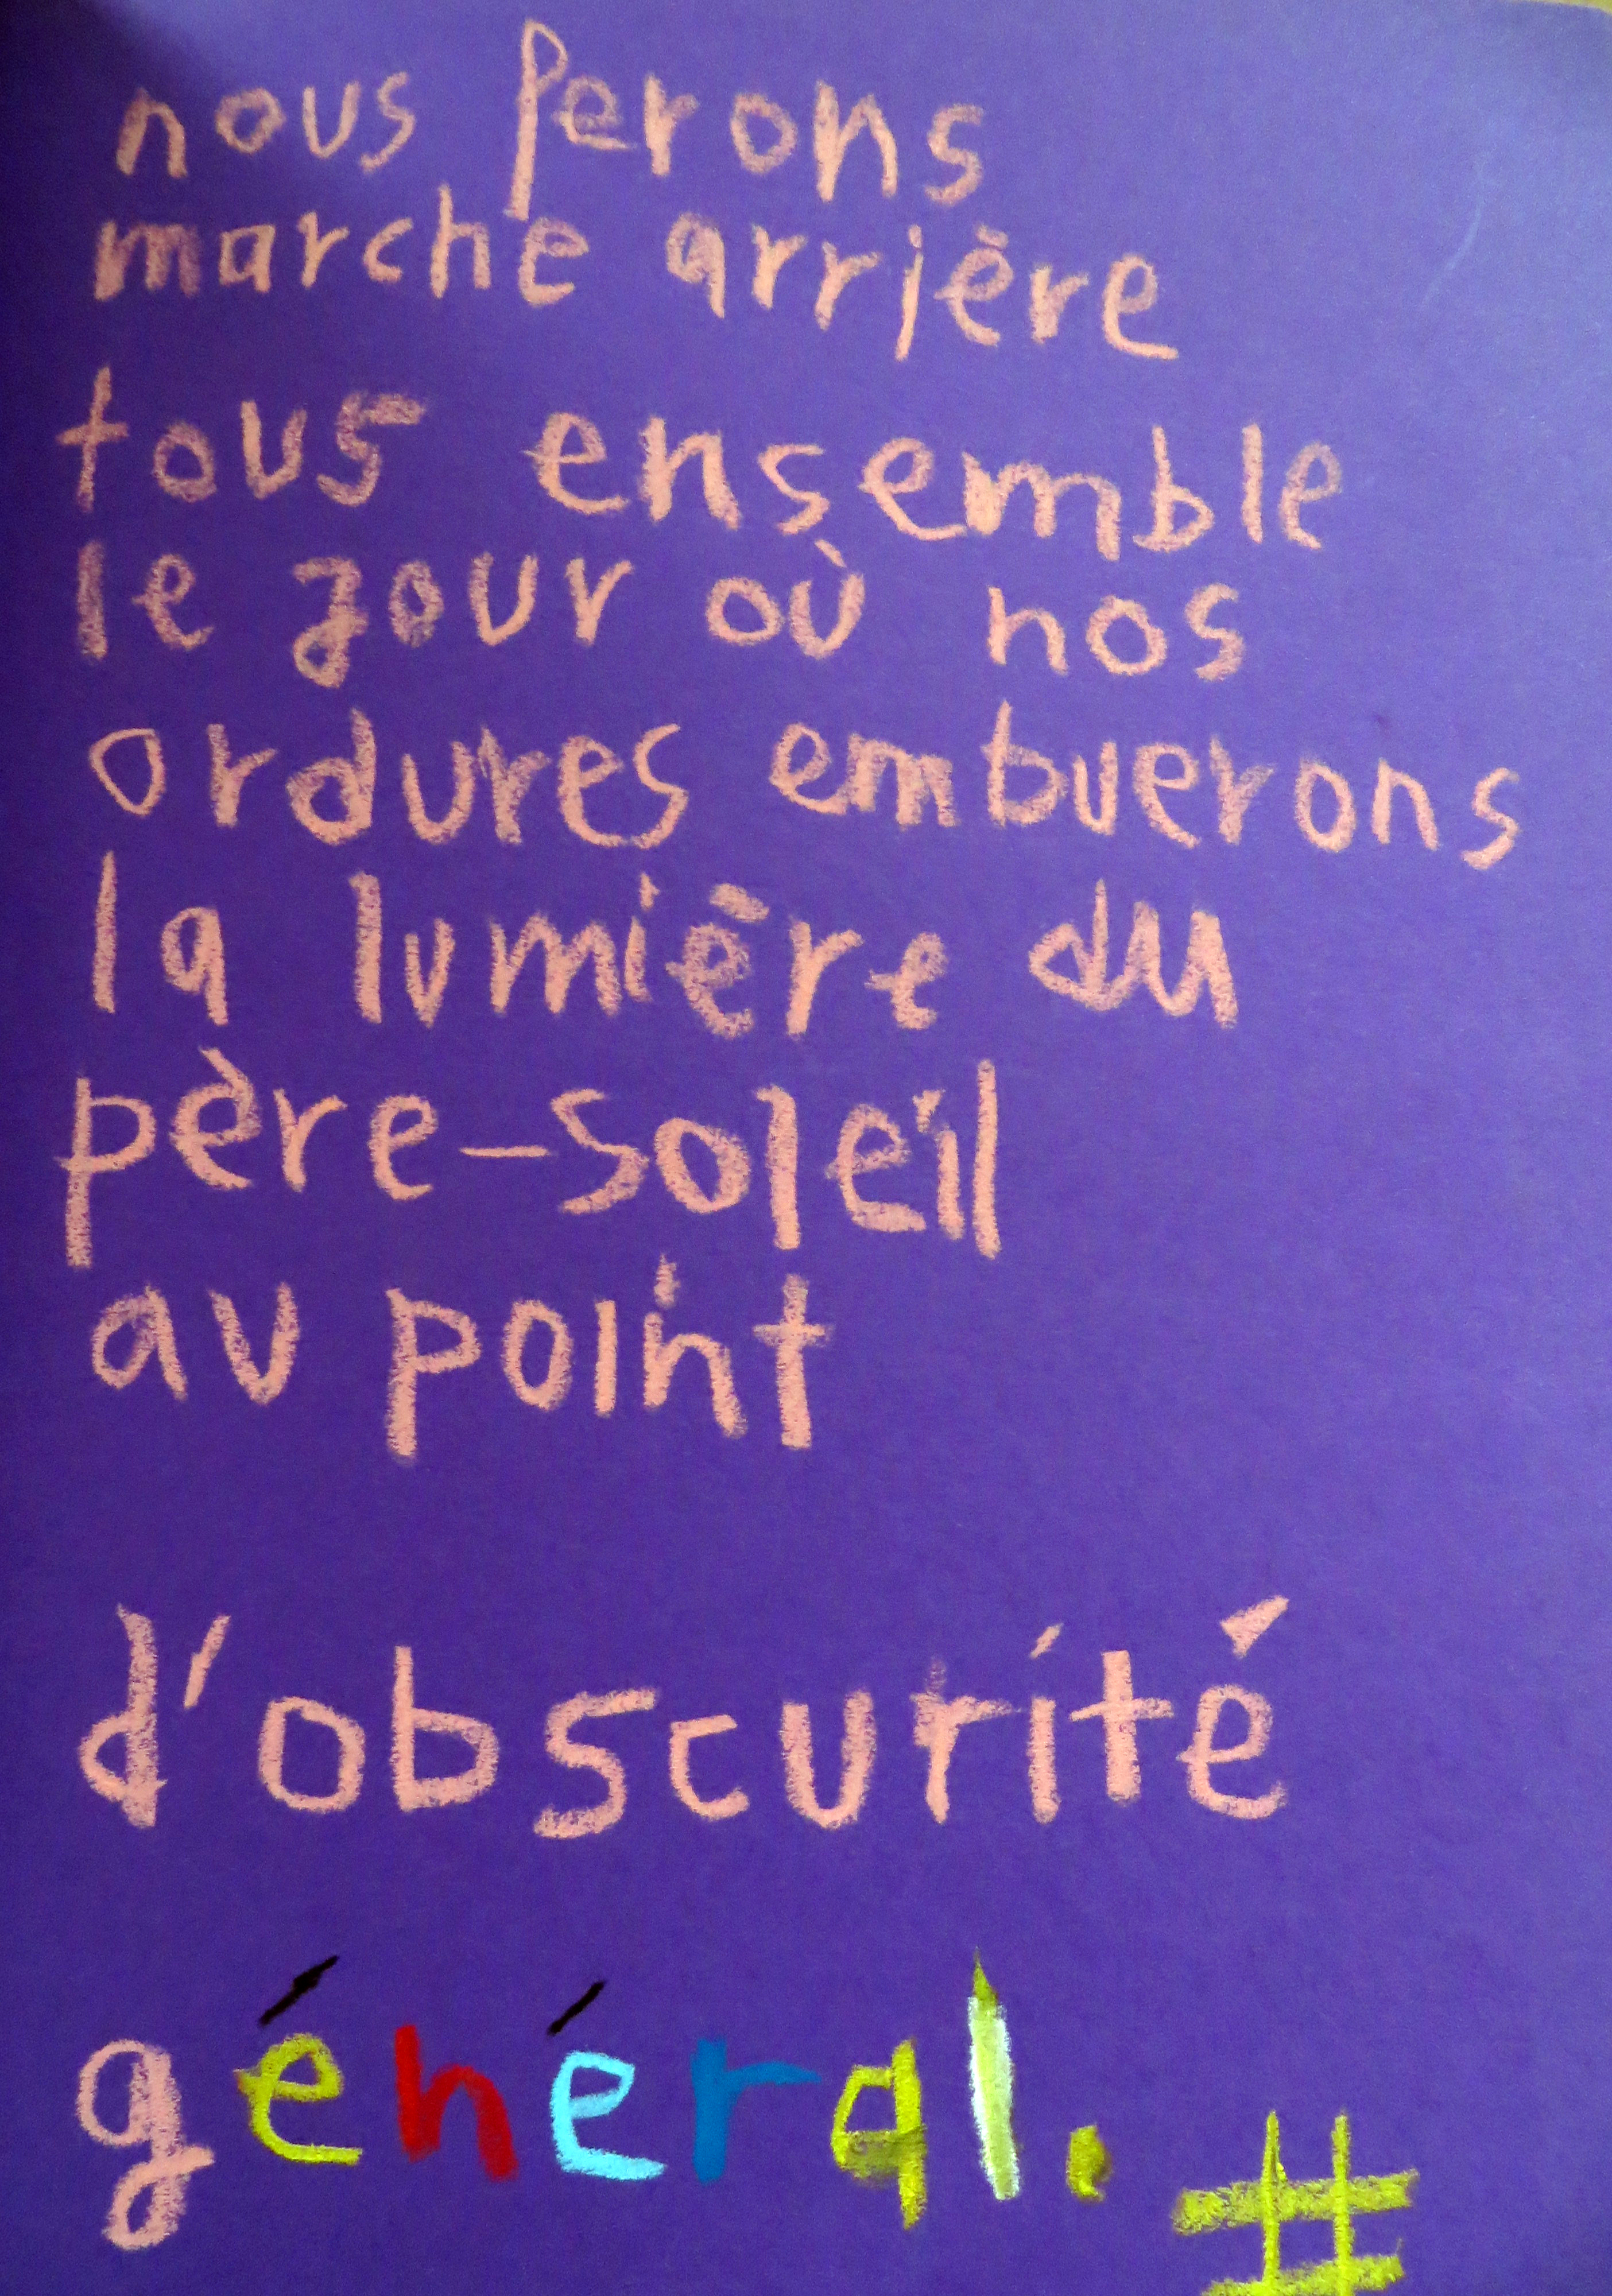 nous ferons
marche arrière
tous ensemble
le jour où nos
ordures embuerons
la lumière du
père-soleil
au point
d'obscurité
général.
#